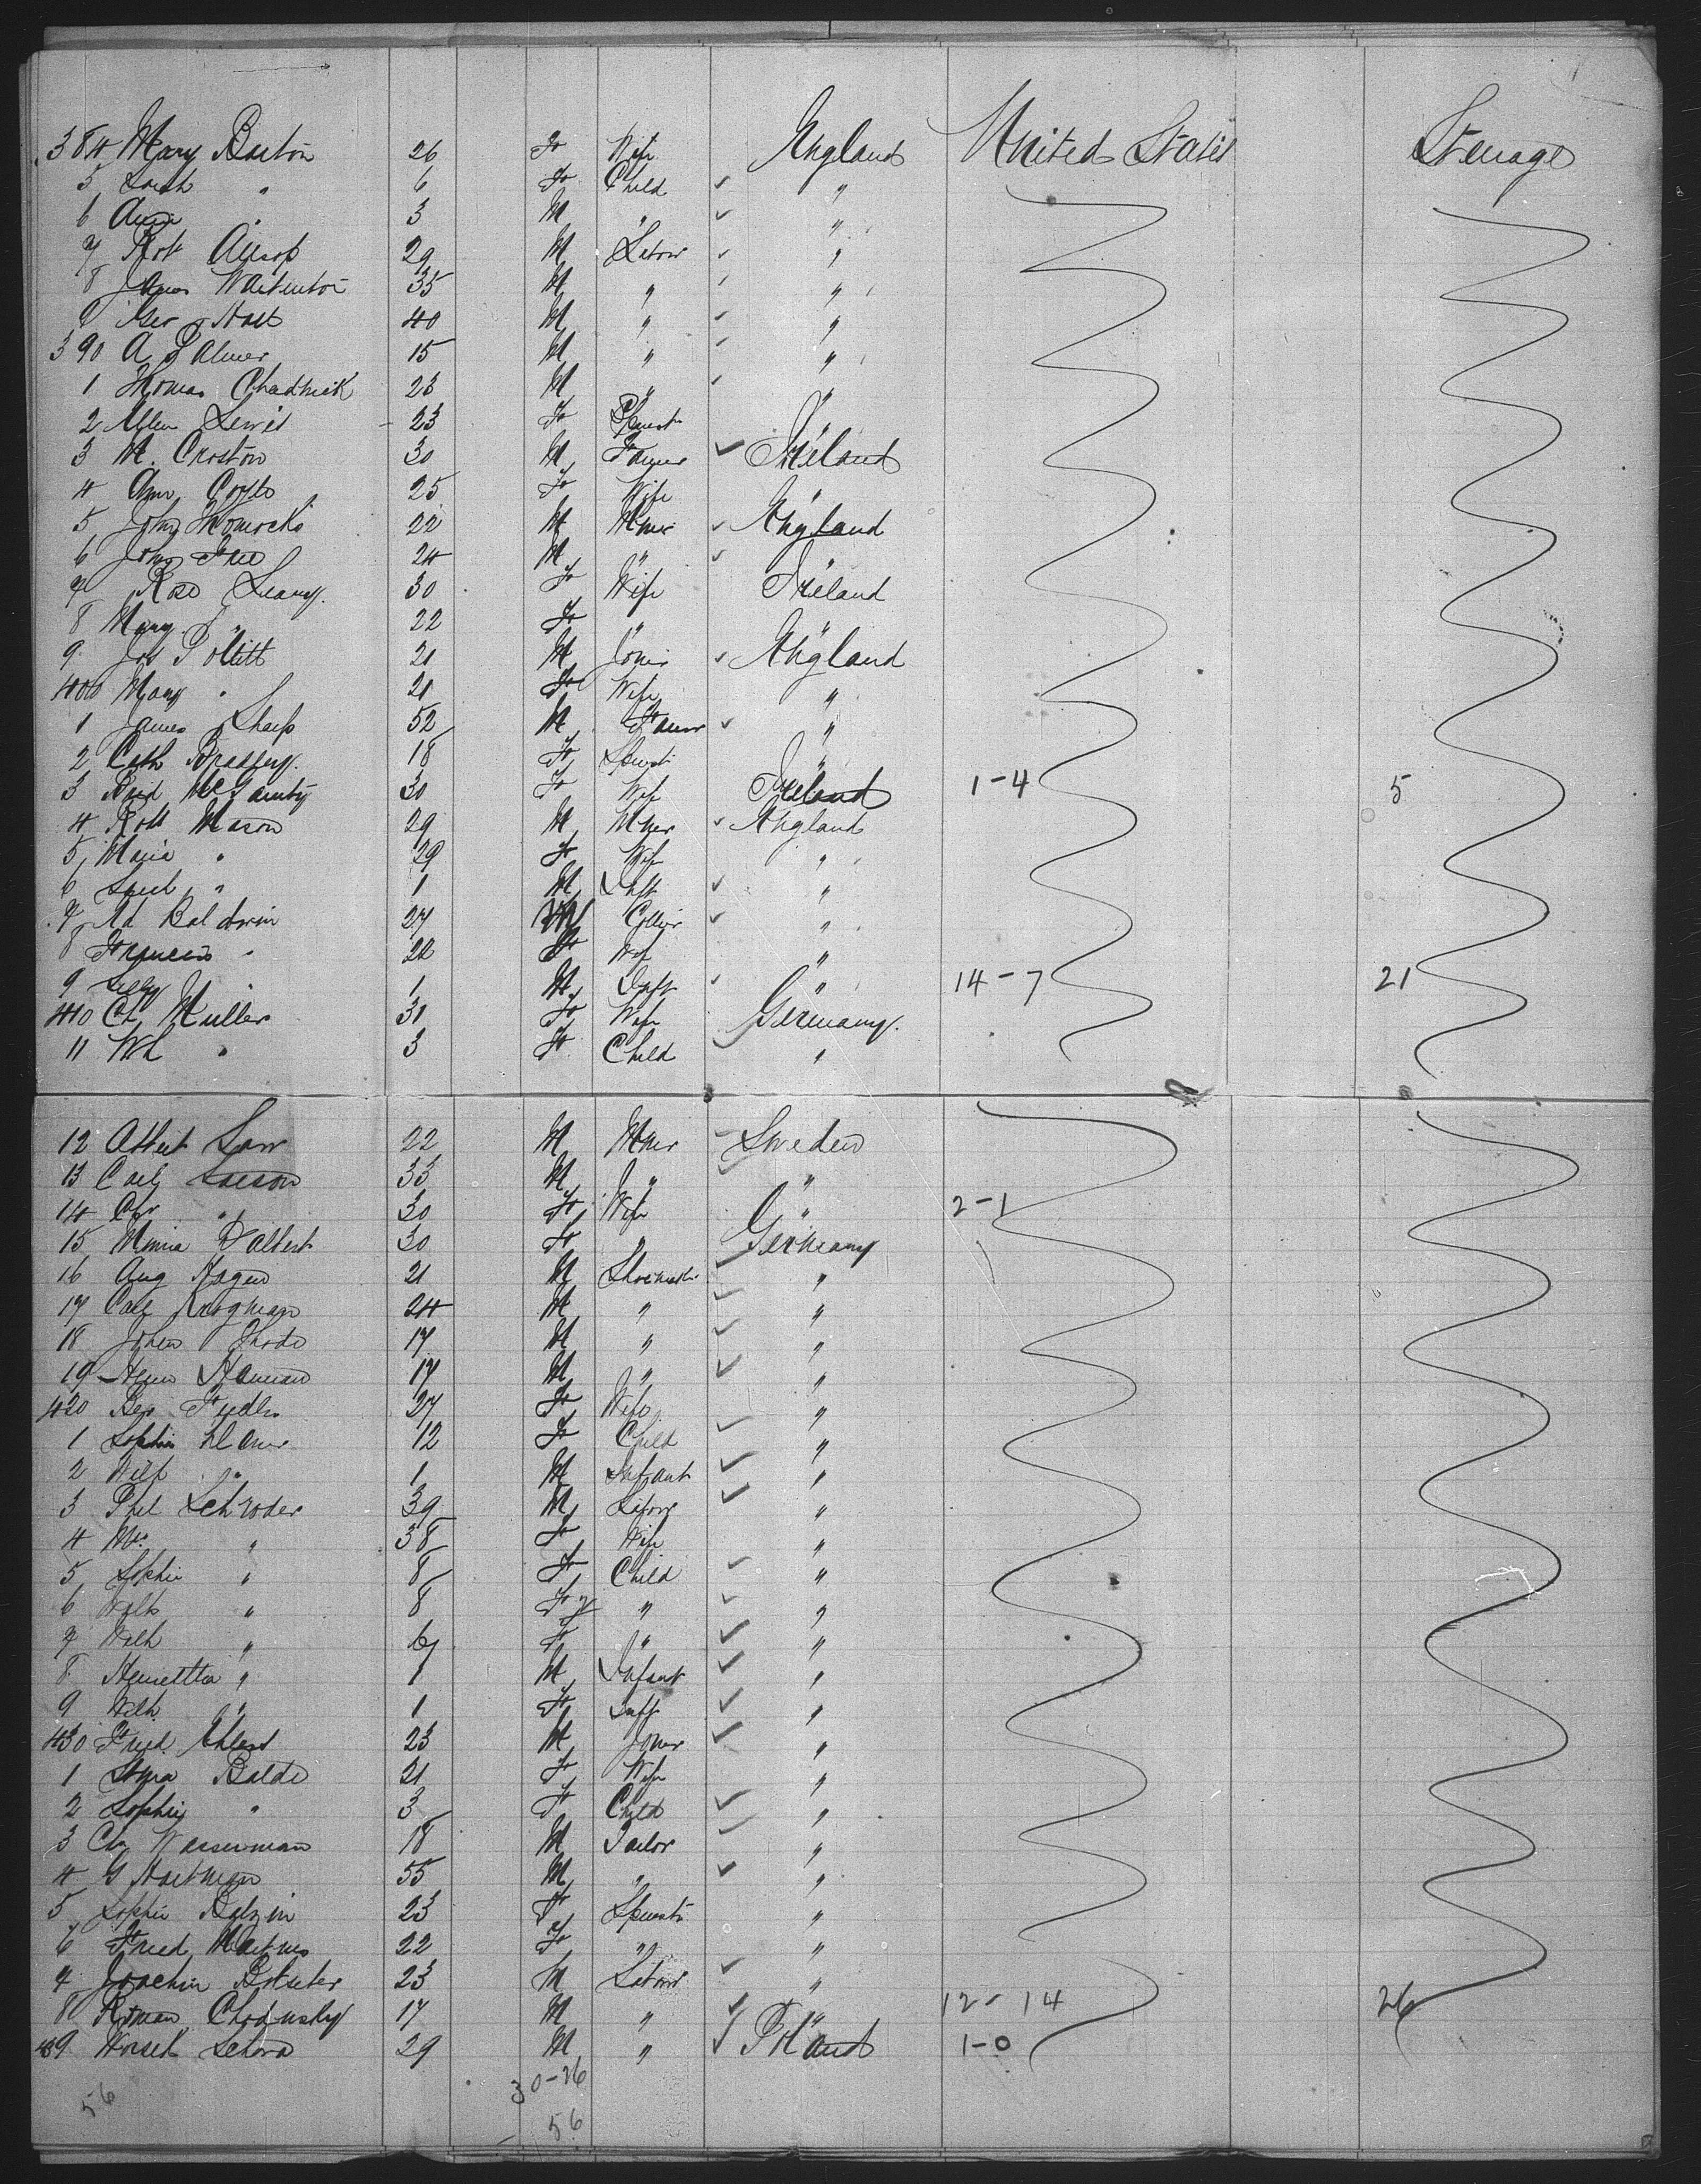 384 Mary Barton 26 F Wife England United States Steerage
5 Sarah " 6 F Child "
6 3 M " "
7 Robt Alsop 29 M Labour "
8 James Warburton 35 M " "
9 Geo Holt 40 M " "
390 A Palmer 15 M " "
1 Thomas Chadwick 23 M " "
2 Ellen Lewis 23 F Spinst "
3 M. Croston 30 M Farmer Ireland
4 Ann 25 F Wife "
5 John 22 M Miner England
6 John 24 M " "
7 Rose Leamy 30 F Wife Ireland
8 Mary " 22 F " "
9 Jos Pollitt 21 M Joiner England
400 Mary " 21 F Wife "
1 James Sharp 52 M Farmer "
2 Cath Bradley 18 F Spinst "
3 Brid McGainty 30 F Wife Ireland 1-4 5
4 Robt Mason 29 M Miner England
5 Maria " 29 F Wife "
6 Saml " 1 M Inft "
7 Rd Baldwin 27 M Collier "
8 Frances " 22 F Wife "
9 " 1 M Inft " 14-7 21
410 Ch Muller 31 F Wife Germany
11 Wh " 3 F Child "
12 Albert 22 M Miner Sweden
13 Carl Larson 33 M " "
14 Chr " 30 F Wife " 2-1
15 Minna 30 F " Germany
16 Aug Hagen 21 M Shoemakr "
17 Carl Krogman 24 M " "
18 Johen 17 M " "
19 17 M " "
420 27 F Wife "
1 Sophie 12 F Child "
2 Wilh " 1 M Infant "
3 Phil Schroder 39 M Labour "
4 Mr " 38 F Wife "
5 Sophie " 8 F Child "
6 " 8 F " "
7 Wilh " 6 F " "
8 Henrietta " 1 M Infant "
9 Wilh " 1 F Inft "
430 Fried. Ehlert 23 M Joiner "
1 Balde 21 F Wife "
2 Sophie " 3 F Child "
3 Ch Wasserman 18 M Tailor "
4 G Hartman 55 M " "
5 Sophie Bolzin 23 F Spinst "
6 Fried 22 F " "
7 Joachim 23 M Labour "
8 Roman 17 M " " 12-14 26
439 29 M " Poland 1-0
30-26
56 56